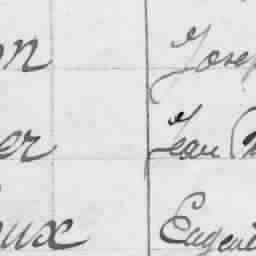 on Josep
er Jean (M
oux Eugene